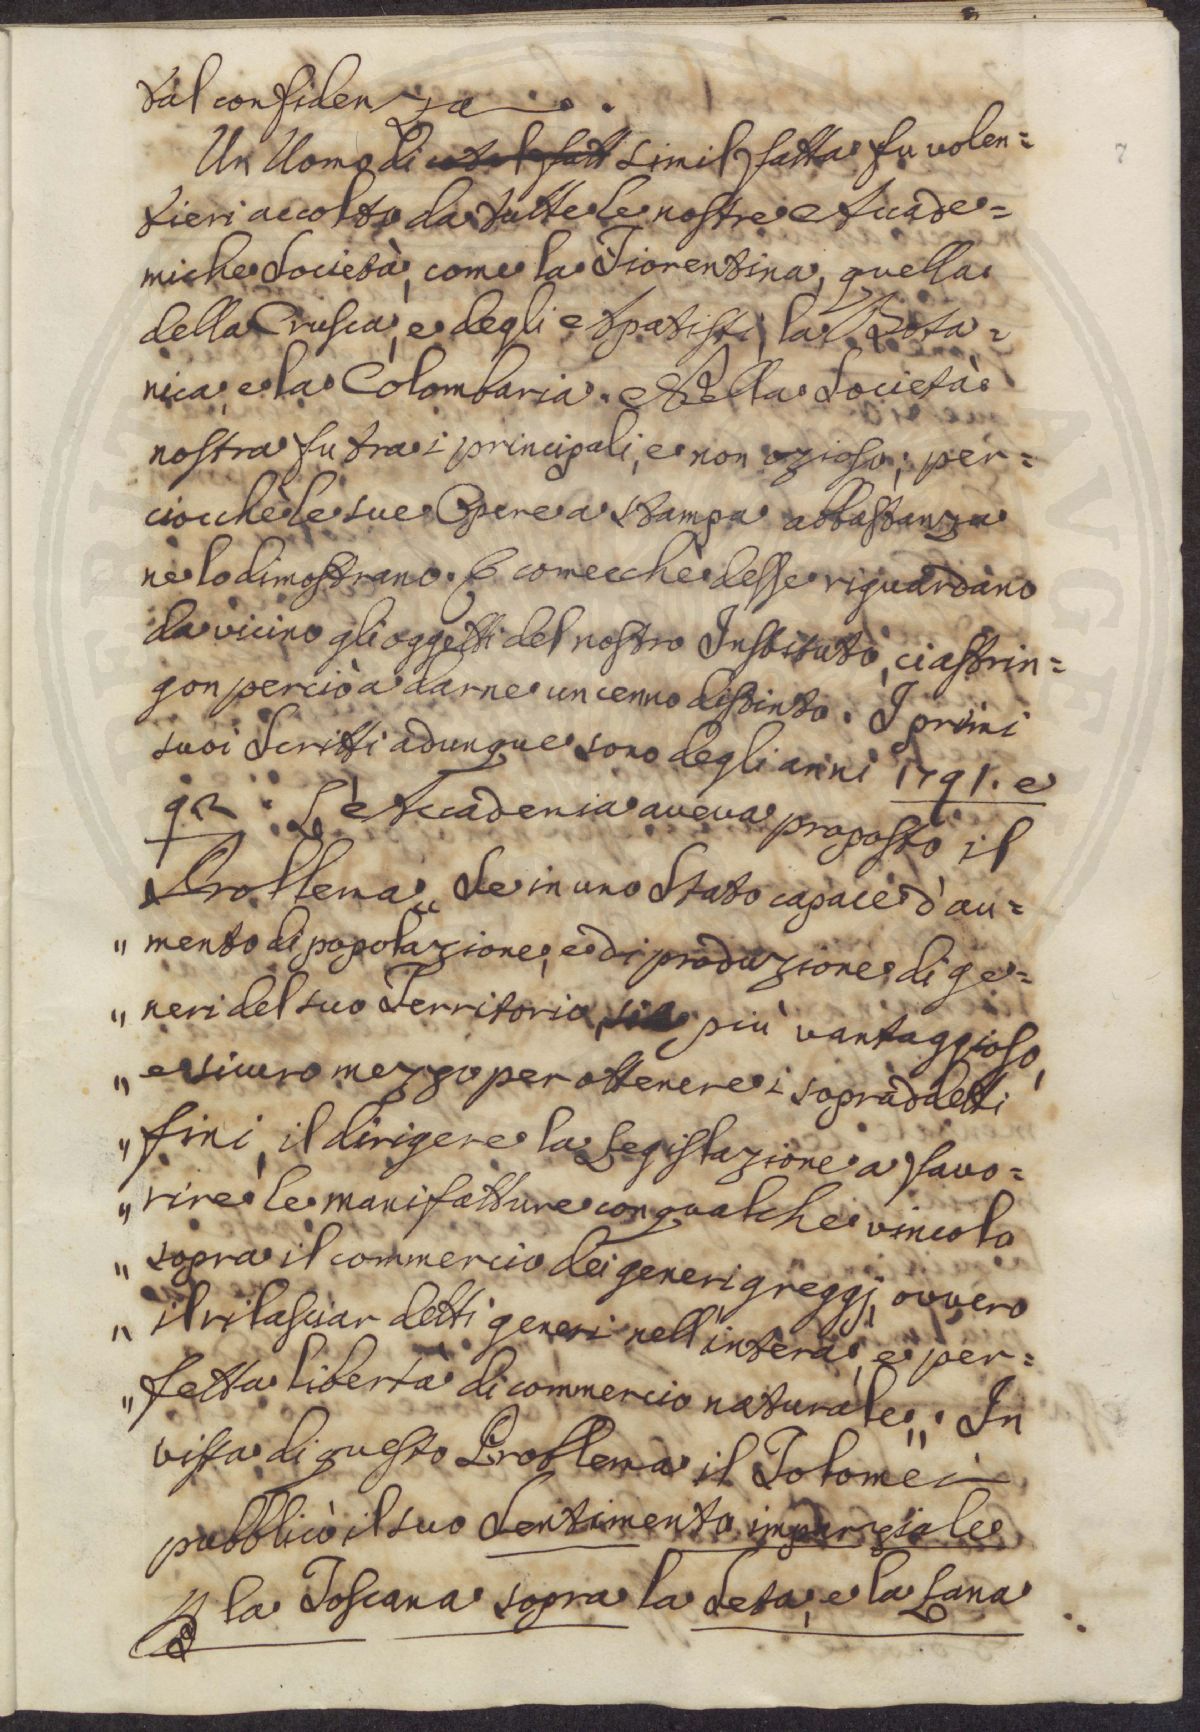 tal confidenza.
Un Uomo di simil fatta fu volen=
tieri accolto da tutte le nostre Accade=
miche Società, come la Fiorentina, quella
della Crusca, e degli Apatisti, la Bota=
nica, e la Colombaria. Nella Società
nostra fu tra i principali, e non ozioso; per=
ciocchè le sue Opere a stampa abbastanza
ne lo dimostrano. E comecchè desse riguardano
da vicino gli oggetti del nostro Instituto, ci astrin=
gon perciò a darne un cenno distinto. I primi
suoi Scritti adunque sono degli anni 1791. e
92. L'Accademia aveva proposto il
Problema „ Se in uno Stato capace d'au=
„ mento di popolazione, e di produzione di ge=
„ neri del suo Territorio, sia più vantaggioso,
„ e sicuro mezzo per ottenere i sopraddetti
„ fini, il dirigere la Legislazione a favo=
„ rire le manifatture con qualche vincolo
„ sopra il commercio dei generi greggj, ovvero
„ il rilasciar detti generi nell'intera, e per=
„ fetta libertà di commercio naturale „. In
vista di questo Problema il Tolomei
pubblicò il suo Sentimento imparziale
per la Toscana sopra la Seta, e la Lana.
7